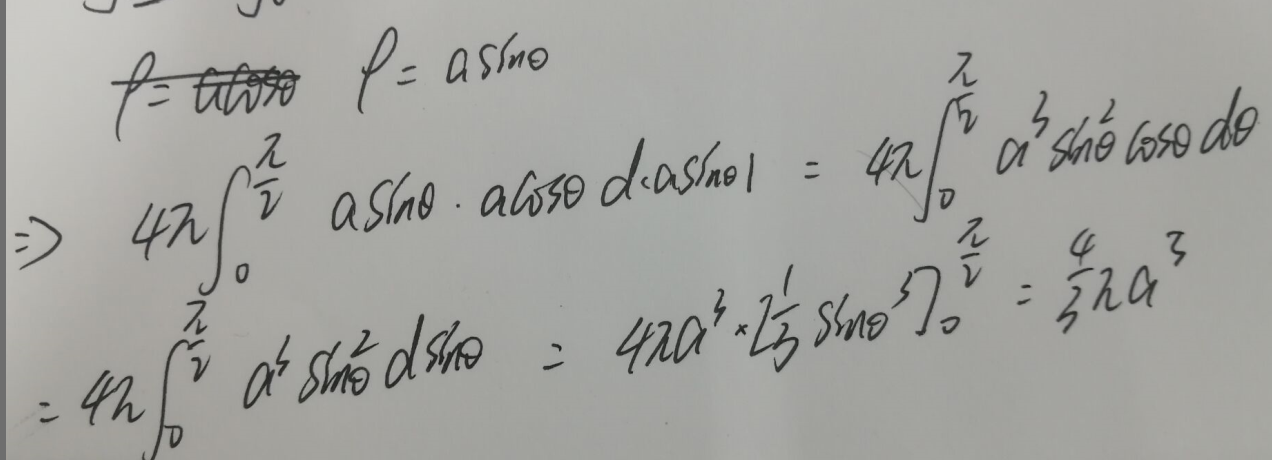 ρ = a cosθ ρ = a sinθ
⇒ 4π∫₀^{π/2} a sinθ · a cosθ d(a sinθ) = 4π∫₀^{π/2} a³ sin²θ cosθ dθ
= 4π∫₀^{π/2} a³ sin²θ d sinθ = 4πa³ × [1/3 sinθ³]₀^{π/2} = 4/3 πa³